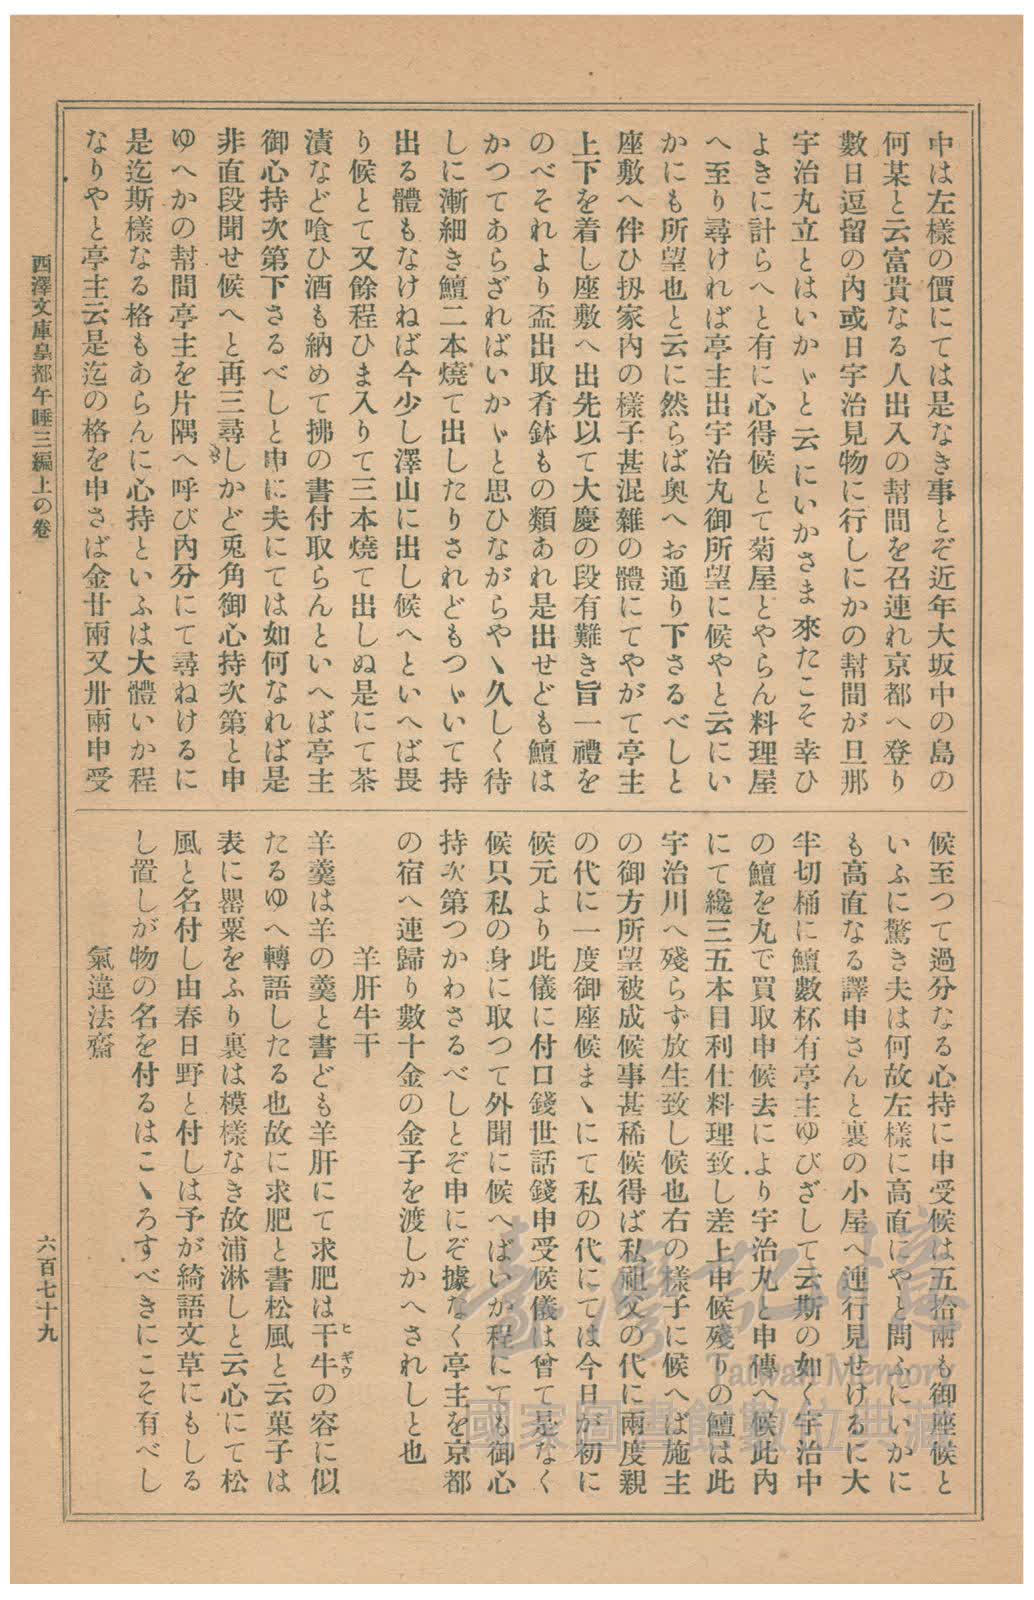 中は左樣の價にては是なき事とぞ近年大坂中の島の
何某と云富貴なる人出入の幇間を召連れ京都へ登り
數日逗留の内或日宇治見物に行しにかの幇間が旦那
宇治丸立とはいかゞと云にいかさま來たこそ幸ひ
よきに計らへと有に心得候とて菊屋とやらん料理屋
へ至り尋ければ亭主出宇治丸御所望に候やと云にい
かにも所望也と云に然らば奥へお通り下さるべしと
座敷へ伴ひ扨家内の樣子甚混雜の體にてやがて亭主
上下を着し座敷へ出先以て大慶の段有難き旨一禮を
のべそれより盃出取肴鉢もの類あれ是出せども鱣は
かつてあらざればいかゞと思ひながらやゝ久しく待
しに漸細き鱣二本燒て出したりされどもつゞいて持
出る體もなけねば今少し澤山に出し候へといへば畏
り候とて又餘程ひま入りて三本燒て出しぬ是にて茶
漬など喰ひ酒も納めて拂の書付取らんといへば亭主
御心持次第下さるべしと申に夫にては如何なれば是
非直段聞せ候へと再三尋しかど兎角御心持次第と申
ゆへかの幇間亭主を片隅へ呼び内分にて尋ねけるに
是迄斯樣なる格もあらんに心持といふは大體いか程
なりやと亭主云是迄の格を申さば金廿兩又卅兩申受
候至つて過分なる心持に申受候は五拾兩も御座候と
いふに驚き夫は何故左樣に高直にやと問ふにいかに
も高直なる譯申さんと裏の小屋へ連行見せけるに大
半切桶に鱣數杯有亭主ゆびざして云斯の如く宇治中
の鱣を丸で買取申候去により宇治丸と申傳へ候此内
にて纔三五本目利仕料理致し差上申候殘りの鱣は此
宇治川へ殘らず放生致し候也右の樣子に候へば施主
の御方所望被成候事甚稀候得ば私祖父の代に兩度親
の代に一度御座候まゝにて私の代にては今日が初に
候元より此儀に付口錢世話錢申受候儀は曾て是なく
候只私の身に取つて外聞に候へばいか程にても御心
持次第つかわさるべしとぞ申にぞ據なく亭主を京都
の宿へ連歸り數十金の金子を渡しかへされしと也
羊肝牛干
羊羹は羊の羹と書ども羊肝にて求肥は干牛の容に似
ヒギウ
たるゆへ轉語したる也故に求肥と書松風と云菓子は
表に罌粟をふり裏は模樣なき故浦淋しと云心にて松
風と名付し由春日野と付しは予が綺語文草にもしる
し置しが物の名を付るはこゝろすべきにこそ有べし
氣違法齋
西澤文庫皇都午睡三編上の卷
六百七十九
臺灣記憶
Taiwan Memory
國家圖書館數位典藏